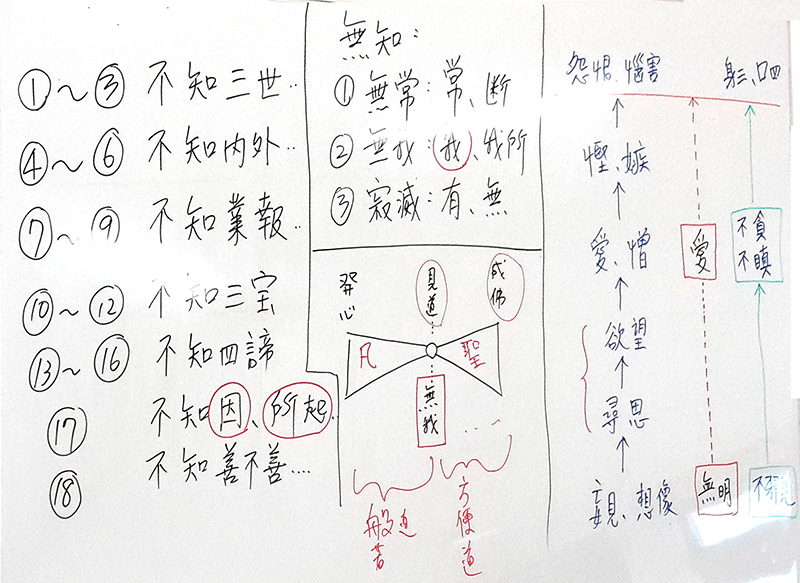 ①～③ 不知三世..
④～⑥ 不知内外..
⑦～⑨ 不知業報..
⑩～⑫ 不知三宝
⑬～⑯ 不知四諦
⑰ 不知因、所起..
⑱ 不知善不善....
無知：
① 無常：常、断
② 無我：我、我所
③ 寂滅：有、無
發心
見道
成佛
凡
聖
無我
....
般若道
方便道
怨恨、惱害
慳、嫉
愛、憎
欲望
尋思
妄見、想像
愛
無明
身三、口四
不貪
不瞋